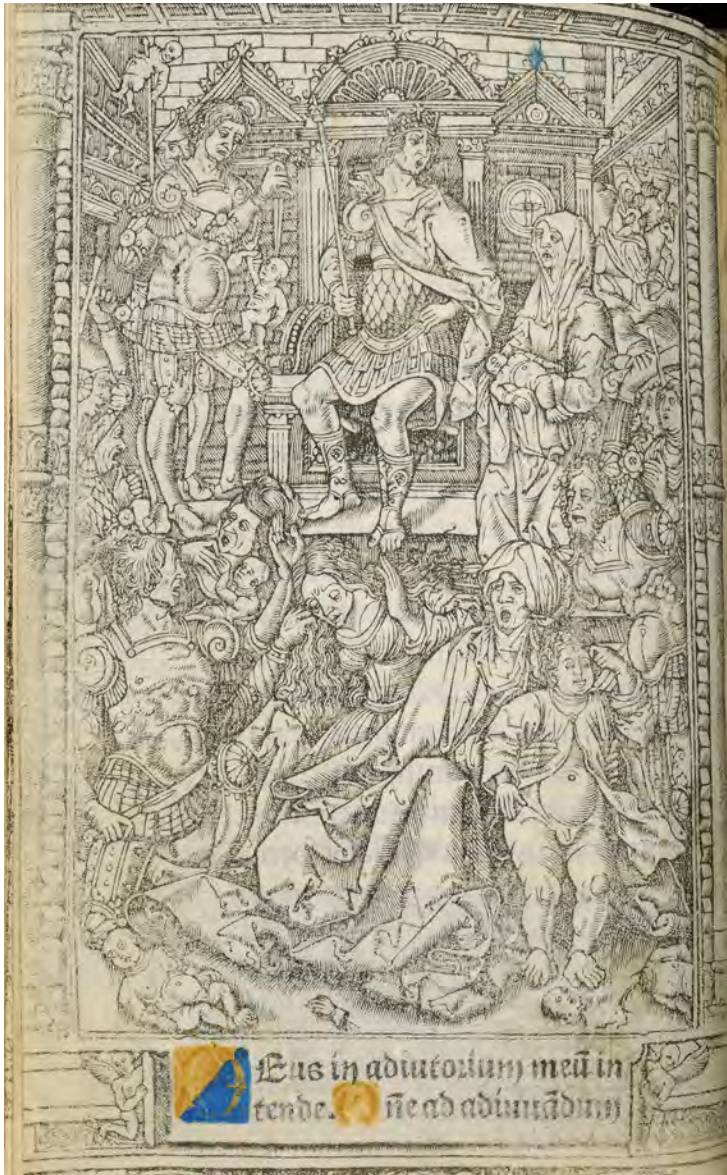 DEus in adiutorium meū in
tende. Dñe ad adiuuādum